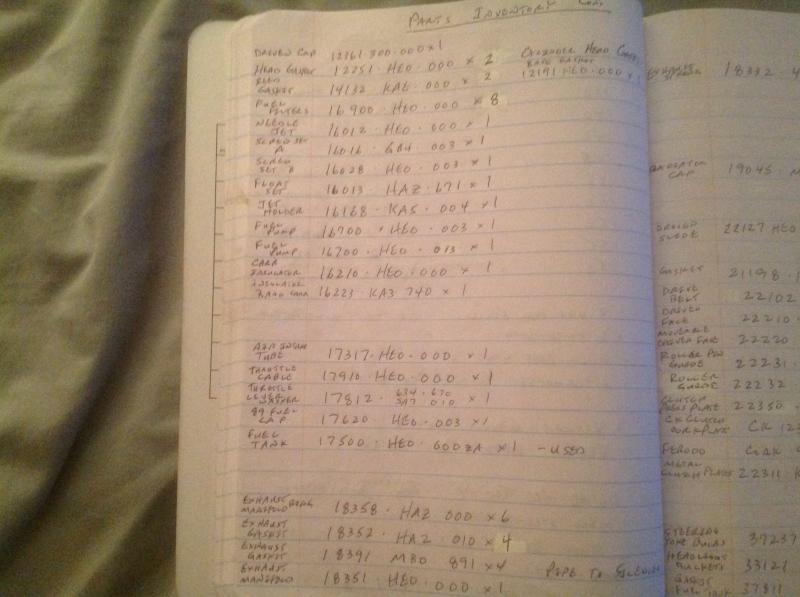 PARTS INVENTORY
DRIVEN CAP 12361 300.000 x 1
HEAD GASKET 12251.HEO.000 x 2 CYLINDER HEAD
REED GASKET 14132 KAE.000 x 2 BASE GASKET 12191 HEO.000 x
FUEL FILTERS 16900.HEO.000 x 8
NEEDLE JET 16012.HEO.000 x 1
SCREW SET A 16016.GB4.003 x 1
SCREW SET B 16028.HEO.003 x 1
FLOAT SET 16013.HAZ.671 x 1
JET HOLDER 16168.KAS.004 x 1
FUEL PUMP 16700.HEO.003 x 1
FUEL PUMP 16700.HEO.013 x 1
CARB INSULATOR 16210.HEO.000 x 1
INSULATOR BAND CARB 16223.KA3 740 x 1
AIR INTAKE TUBE 17317.HEO.000 x 1
THROTTLE CABLE 17910.HEO.000 x 1
THROTTLE LEVER WASHER 17812. 634.670 SA7 010 x 1
89 FUEL CAP 17620.HEO.003 x 1
FUEL TANK 17500.HEO.600ZA x 1 - USED
EXHAUST MANIFOLD RING 18358.HAZ 000 x 6
EXHAUST GASKET 18352.HAZ 010 x 4
EXHAUST GASKET 18391 MBO 891 x 4
EXHAUST MANIFOLD 18351 HEO.000 x 1 PIPE TO
18332
RADIATOR CAP 19045
22127 HEO
GASKET 21198
DRIVE BELT 22102
DRIVEN FACE 22210
MOVEABLE DRIVEN FACE 22220
ROLLER PIN GUIDE 22231
ROLLER GUIDE 22232
CLUTCH PRESS PLATE 22350
CK CLUTCH WORKPLATE CK 12
FERODO CORK
METAL CLUTCH PLATES 22311
STEERING 37237
HEADLIGHT 33121
GASKET FUEL TANK 37811